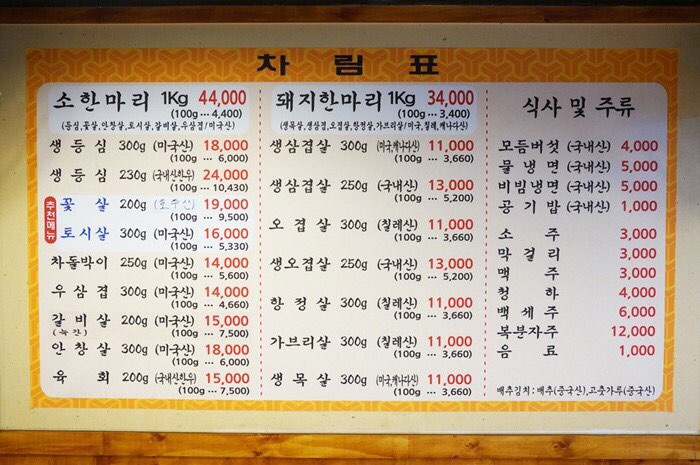 차림표
소한마리 1Kg 44,000
(100g ··· 4,400)
(등심,꽃살,안창살,토시살,갈비살,우삼겹/미국산)
생등심 300g (미국산) 18,000
(100g ··· 6,000)
생등심 230g (국내산한우) 24,000
(100g ··· 10,430)
추천메뉴
꽃살 200g (호주산) 19,000
(100g ··· 9,500)
토시살 300g (미국산) 16,000
(100g ··· 5,330)
차돌박이 250g (미국산) 14,000
(100g ··· 5,600)
우삼겹 300g (미국산) 14,000
(100g ··· 4,660)
갈비살 200g (미국산) 15,000
(늑간) (100g ··· 7,500)
안창살 300g (미국산) 18,000
(100g ··· 6,000)
육회 200g (국내산한우) 15,000
(100g ··· 7,500)
돼지한마리 1Kg 34,000
(100g ··· 3,400)
(생목살,생삼겹,오겹살,항정살,가브리살/미국,칠레,캐나다산)
생삼겹살 300g (미국,캐나다산) 11,000
(100g ··· 3,660)
생삼겹살 250g (국내산) 13,000
(100g ··· 5,200)
오겹살 300g (칠레산) 11,000
(100g ··· 3,660)
생오겹살 250g (국내산) 13,000
(100g ··· 5,200)
항정살 300g (칠레산) 11,000
(100g ··· 3,660)
가브리살 300g (칠레산) 11,000
(100g ··· 3,660)
생목살 300g (미국,캐나다산) 11,000
(100g ··· 3,660)
식사 및 주류
모듬버섯 (국내산) 4,000
물냉면 (국내산) 5,000
비빔냉면 (국내산) 5,000
공기밥 (국내산) 1,000
소주 3,000
막걸리 3,000
맥주 3,000
청하 4,000
백세주 6,000
복분자주 12,000
음료 1,000
배추김치: 배추(중국산), 고춧가루(중국산)